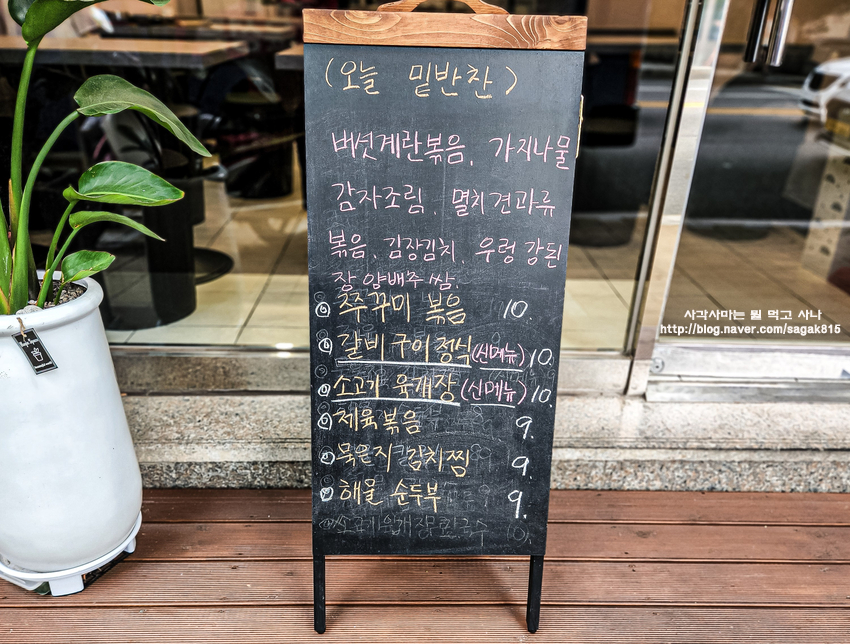 (오늘 밑반찬)
버섯계란볶음, 가지나물
감자조림, 멸치견과류
볶음, 김장김치, 우렁 강된
장 양배추 쌈.
쭈꾸미 볶음 10.
갈비구이정식(신메뉴) 10.
소고기 육개장(신메뉴) 10.
제육볶음 9.
묵은지 김치찜 9.
해물 순두부 9.
사각사마는 뭘 먹고 사나
http://blog.naver.com/sagak815